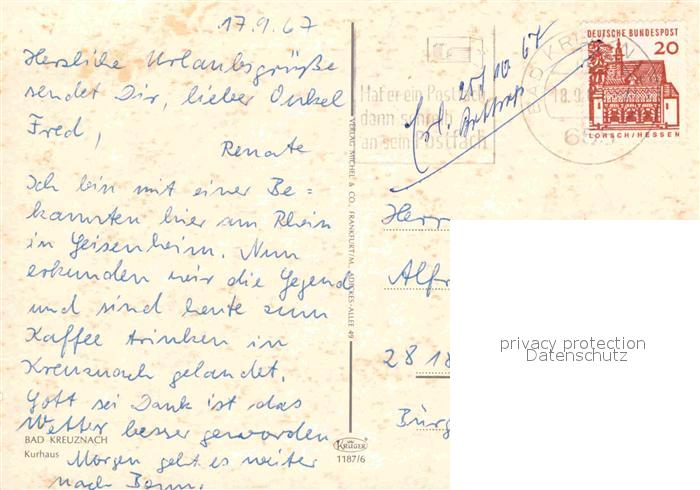 17.9.67
Herzliche Urlaubsgrüße
sendet Dir, lieber Onkel
Fred,
Renate
Ich bin mit einer Be=
kannten hier am Rhein
in Geisenheim. Nun
erkunden wir die Gegend
und sind heute zum
Kaffee trinken in
Kreuznach gelandet.
Gott sei Dank ist das
Wetter besser geworden
BAD KREUZNACH
Kurhaus
Morgen geht es weiter
nach Bonn.
VERLAG MICHEL & CO., FRANKFURT/M., ADICKES-ALLEE 49
KRÜGER
1187/6
Hat er ein Postfach
dann schreib
an sein Postfach
10. 67
BAD KR
18.9.
DEUTSCHE BUNDESPOST
20
LORSCH/HESSEN
Herr
Alfr
28 18
Bürg
privacy protection
Datenschutz